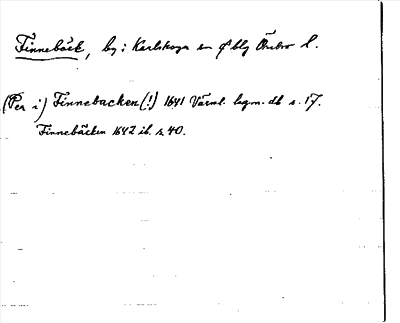 Finnebäck, by i Karlskoga sn o bbg Örebro l.
(Per i) Finnebacken (!) 1641 Värml. lagm. db s. 17.
Finnebäcken 1642 ib. s. 40.